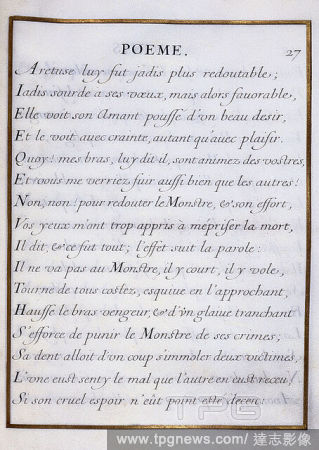 POEME. 27
Aretuse luy fut jadis plus redoutable;
Iadis sourde a ses vœux, mais alors favorable,
Elle voit son Amant pousse d'vn beau desir,
Et le voit auec crainte, autant qu'auec plaisir.
Quoy! mes bras, luy dit il, sont animez des vostres,
Et vous me verriez fuir aussi bien que les autres!
Non, non! pour redouter le Monstre, & son effort,
Vos yeux m'ont trop appris à mépriser la mort,
Il dit, & ce fut tout; l'effet suit la parole:
Il ne va pas au Monstre, il y court, il y vole,
Tourne de tous costez, esquiue en l'approchant,
Hausse le bras vengeur, & d'vn glaiue tranchant
S'efforce de punir le Monstre de ses crimes;
Sa dent alloit d'vn coup s'immoler deux victimes,
L'vne eust senty le mal que l'autre en eust receu,
Si son cruel espoir n'eût point esté deceu.
TPG
www.tpgnews.com / 達志影像